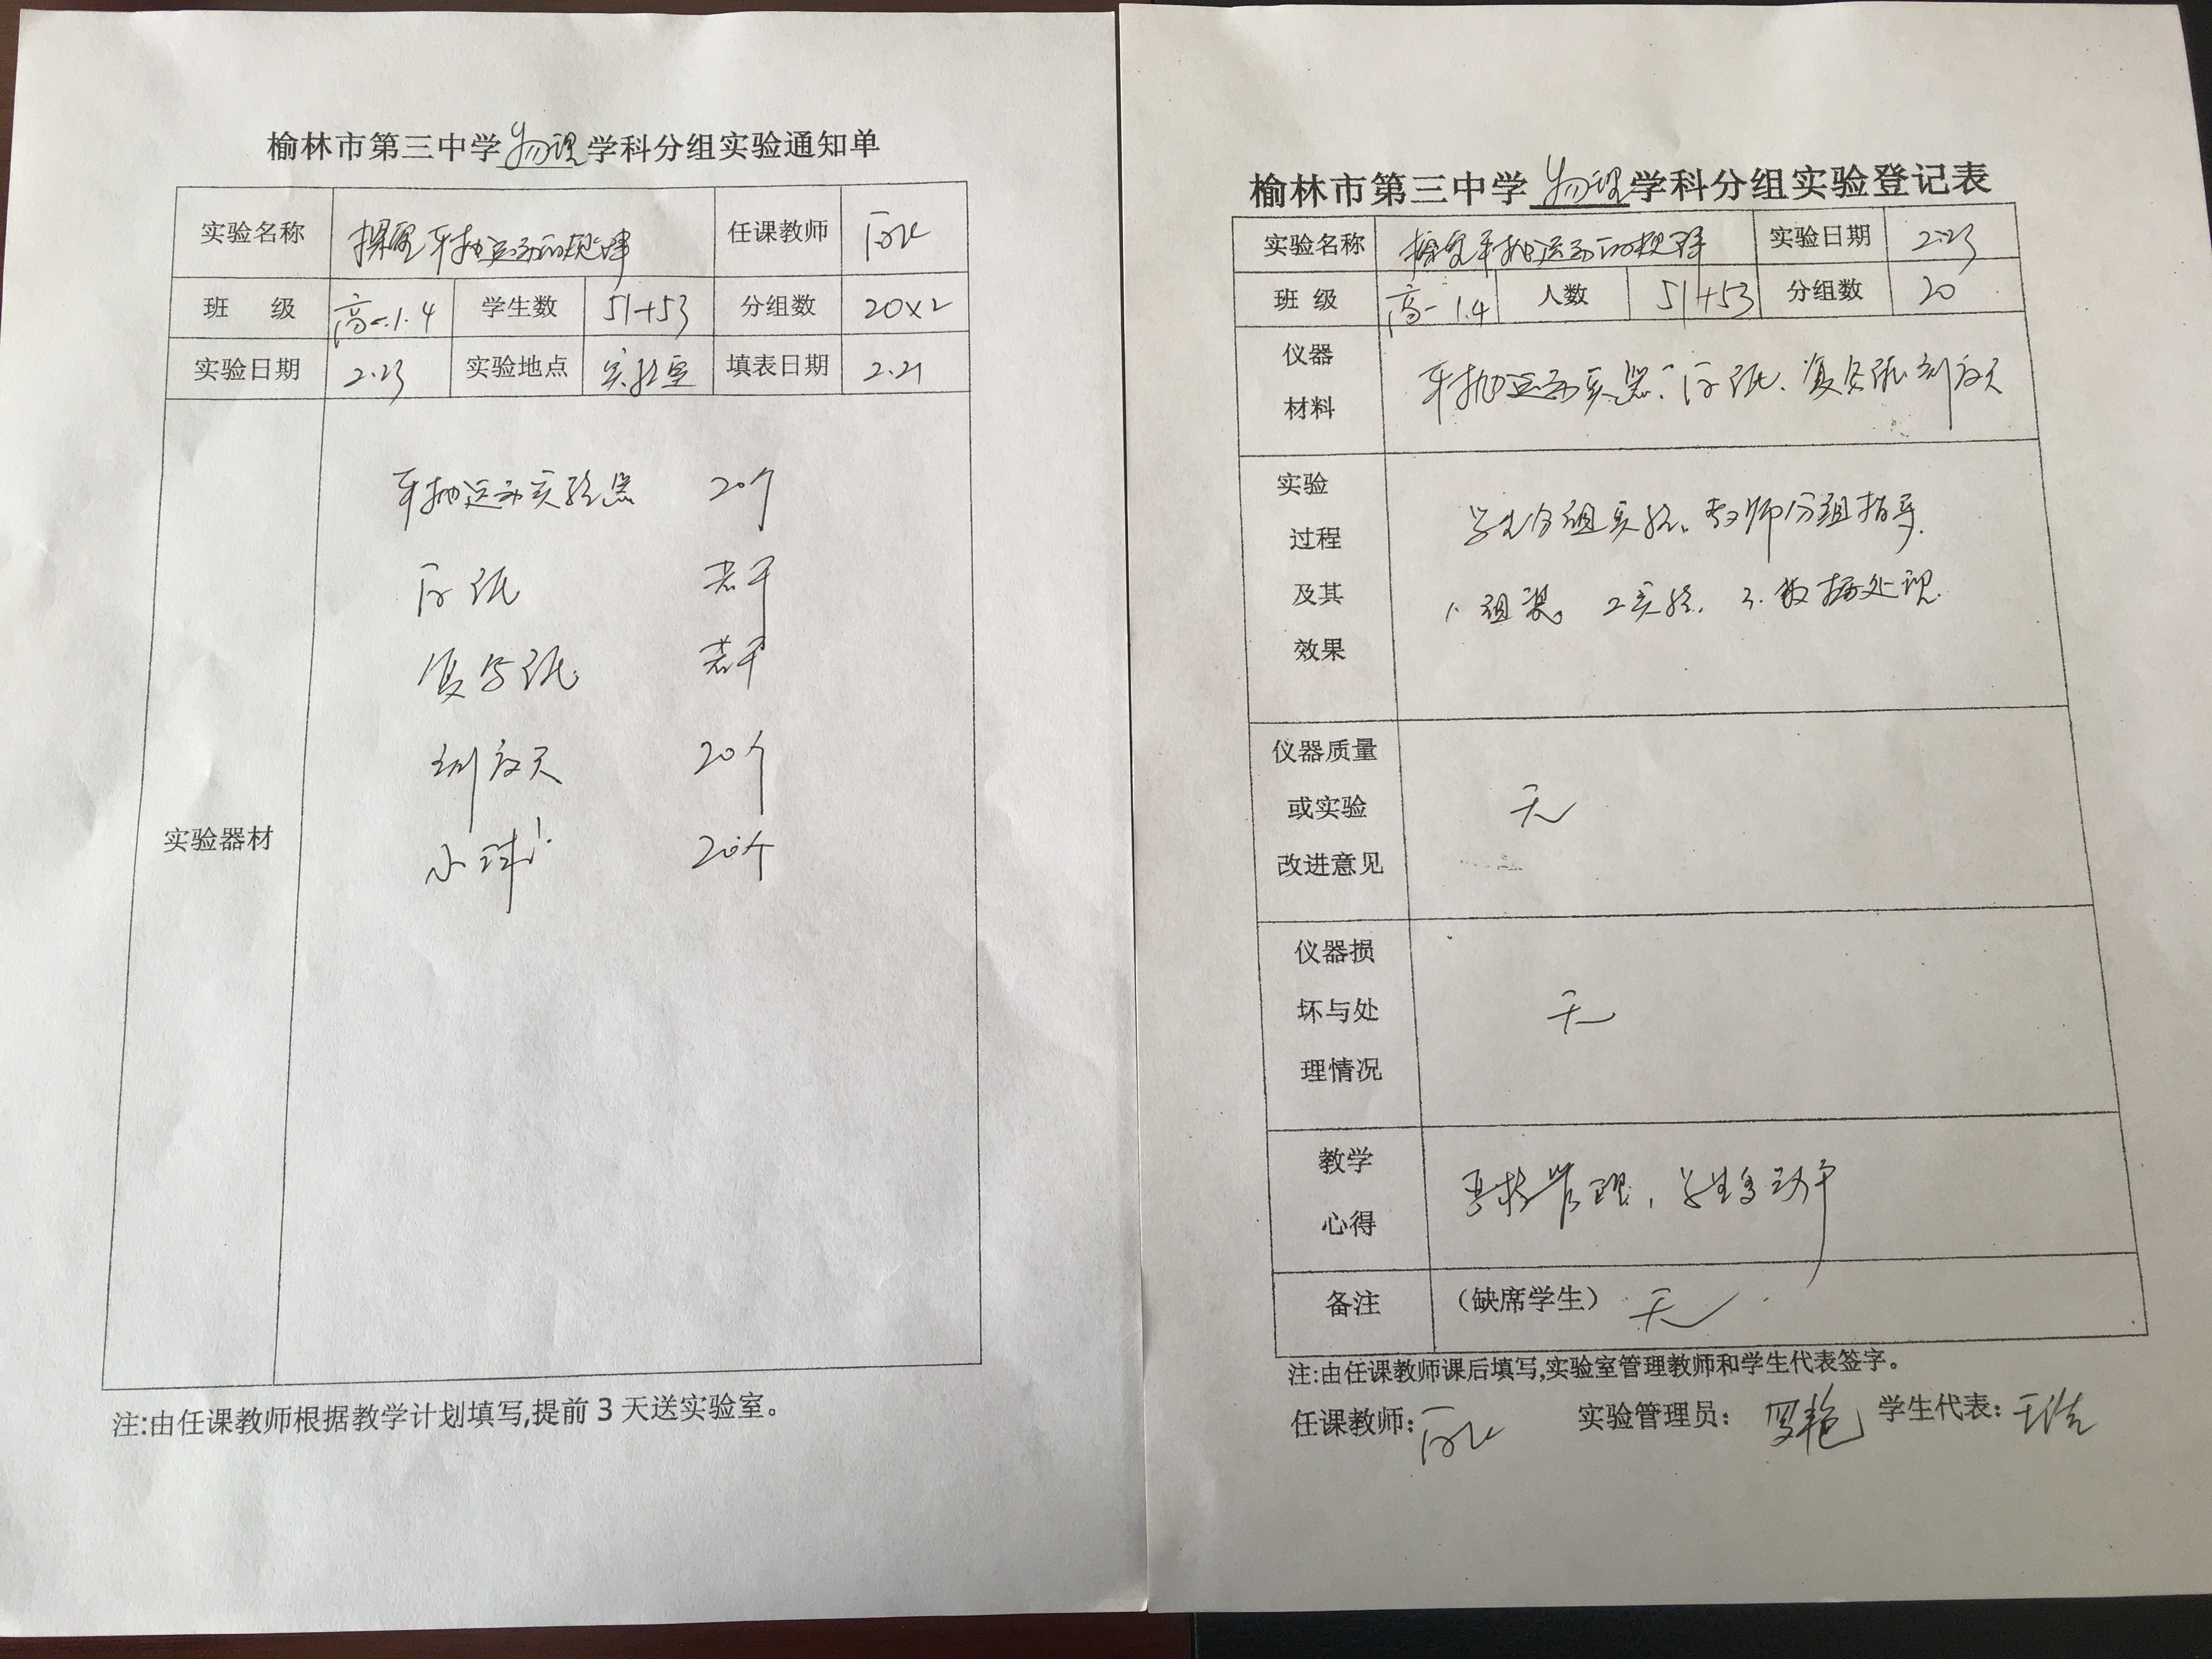 榆林市第三中学物理学科分组实验通知单
实验名称 探究平抛运动的规律 任课教师
班 级 高一.1.4 学生数 51+53 分组数 20×2
实验日期 2.23 实验地点 实验室 填表日期 2.21
实验器材
平抛运动实验器 20个
白纸 若干
复写纸 若干
刻度尺 20个
小球 20个
注:由任课教师根据教学计划填写,提前3天送实验室。
榆林市第三中学物理学科分组实验登记表
实验名称 探究平抛运动的规律 实验日期 2.23
班 级 高一 1.4 人数 51+53 分组数 20
仪器
材料
平抛运动实器、白纸、复写纸 刻度尺
实验
过程
及其
效果
学生分组实验。教师分组指导.
1. 组装。 2实验. 3. 数据处理.
仪器质量
或实验
改进意见
无
仪器损
坏与处
理情况
无
教学
心得
严格管理,学生多动手
备注 (缺席学生) 无
注:由任课教师课后填写,实验室管理教师和学生代表签字。
任课教师: 实验管理员: 罗艳 学生代表: